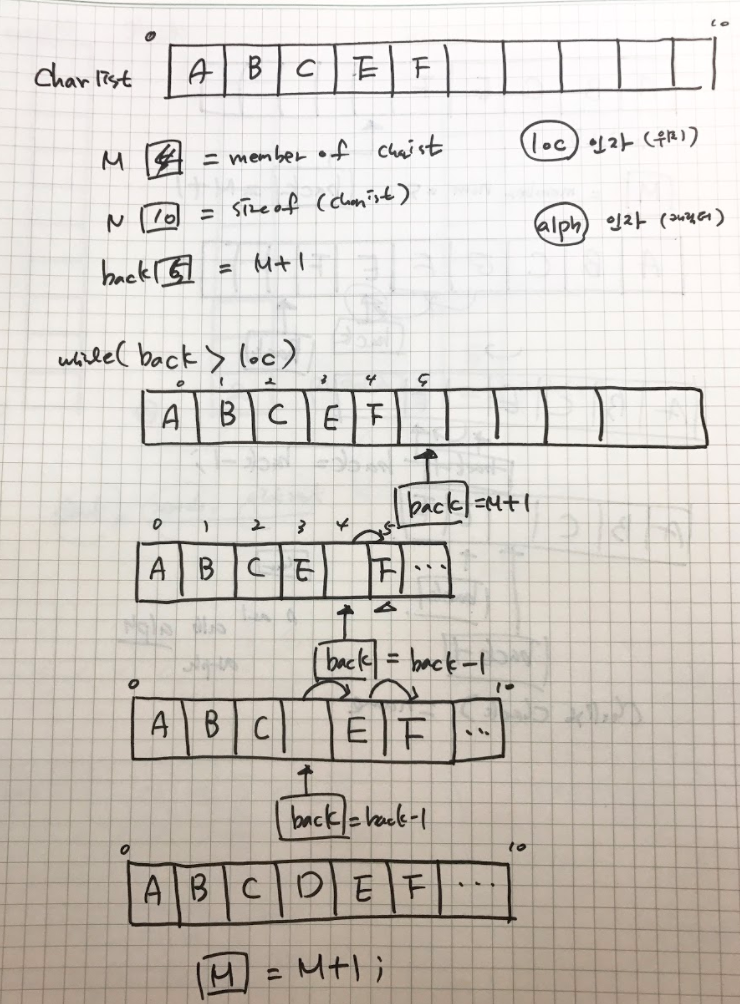 0 10
Charlist A B C E F
M 4 = member of chaist
loc 인자 (위치)
N 10 = size of (charist)
alph 인자 (캐릭터)
back 5 = M+1
while( back > loc)
0 1 2 3 4 5
A B C E F
back = M+1
0 1 2 3 4 5
A B C E F ...
back = back-1
0 10
A B C E F ...
back = back-1
0 10
A B C D E F ...
M = M+1;